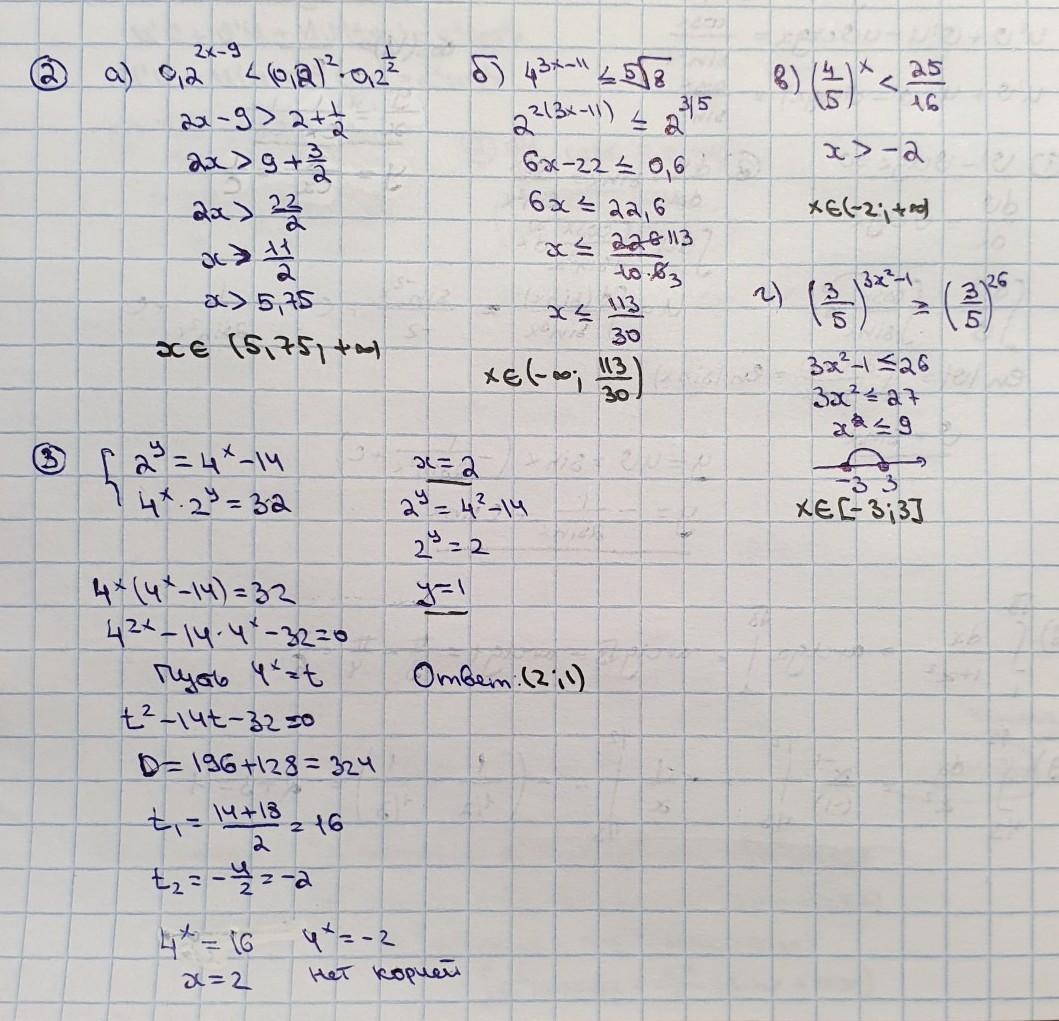 ② а) 0,2^{2x-9} < (0,2)^2 · 0,2^{1/2}
2x-9 > 2+1/2
2x > 9+3/2
2x > 22/2
x > 11/2
x > 5,75
x∈ (5,75; +∞)
б) 4^{3x-11} ≤ 5√8
2^{2(3x-11)} ≤ 2^{3/5}
6x-22 ≤ 0,6
6x ≤ 22,6
x ≤ 226 113/10·6 3
x ≤ 113/30
x∈(-∞; 113/30)
в) (4/5)^x < 25/16
x > -2
x∈(-2; +∞)
г) (3/5)^{3x²-1} ≥ (3/5)^{26}
3x²-1 ≤ 26
3x² ≤ 27
x² ≤ 9
-3 3
x∈[-3;3]
③ { 2^y = 4^x-14
4^x · 2^y = 32
4^x(4^x-14) = 32
4^{2x} - 14·4^x - 32=0
Пусть 4^x = t
t² - 14t - 32 = 0
D = 196+128 = 324
t₁ = 14+18/2 = 16
t₂ = -4/2 = -2
4^x = 16 4^x = -2
x = 2 нет корней
x = 2
2^y = 4²-14
2^y = 2
y=1
Ответ: (2;1)